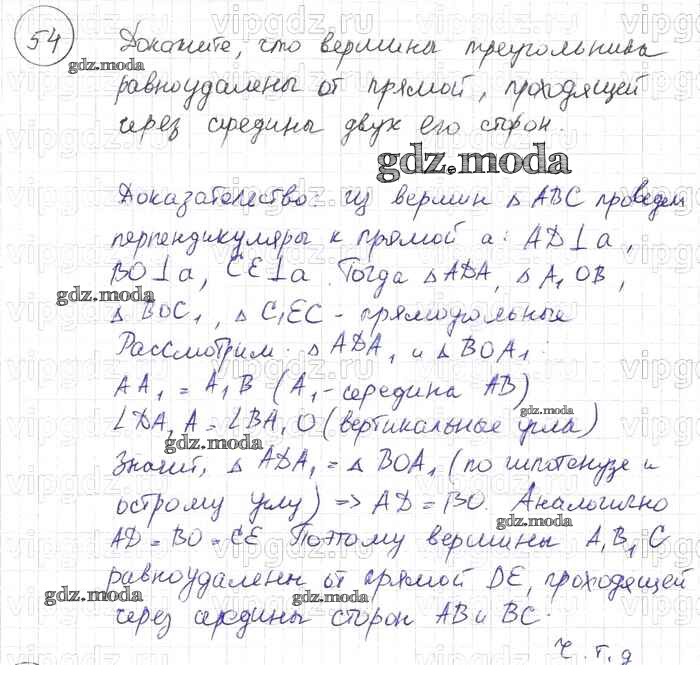 54 Докажите, что вершины треугольника
равноудалены от прямой, проходящей
через середины двух его сторон.
gdz.moda
Доказательство: из вершин △ ABC проведем
перпендикуляры к прямой a: AD⊥a,
BO⊥a, CE⊥a. Тогда △ ADA₁, △ A₁OB,
△ BOC₁, △ C₁EC - прямоугольные
Рассмотрим: △ ADA₁ и △ BOA₁:
AA₁ = A₁B (A₁ - середина AB)
∠DA₁A = ∠BA₁O (вертикальные углы)
Значит, △ ADA₁ = △ BOA₁ (по гипотенузе и
острому углу) => AD = BO. Аналогично
AD = BO = CE Поэтому вершины A, B, C
равноудалены от прямой DE, проходящей
через середины сторон AB и BC.
ч.т.д